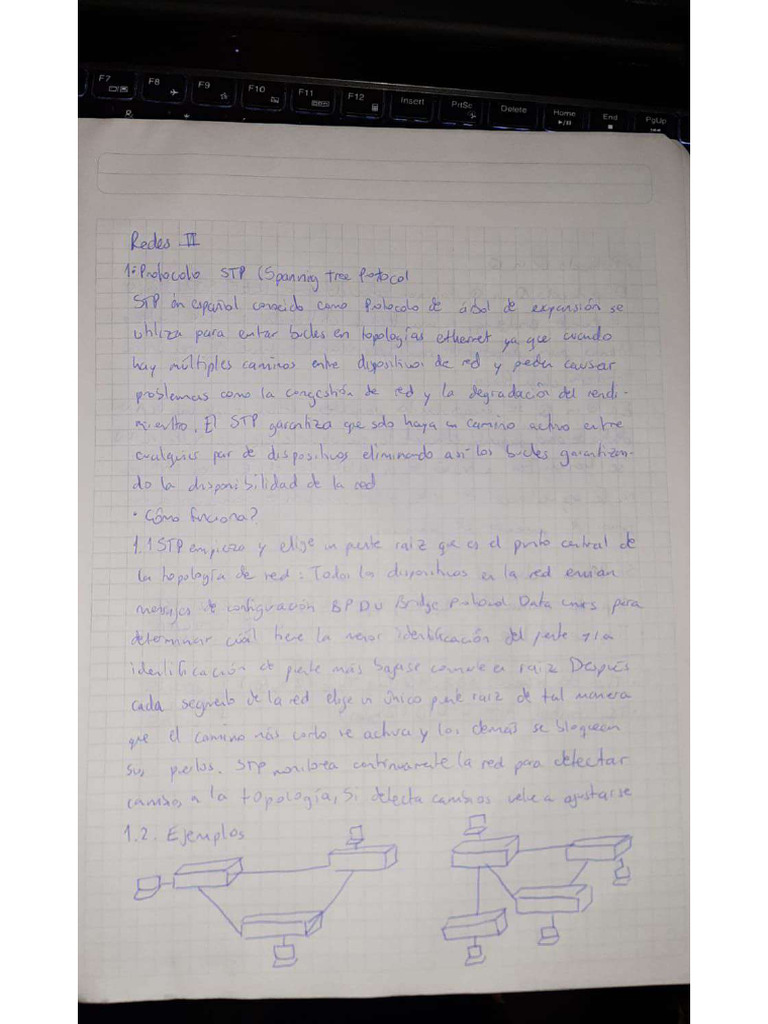 F7
F8
F9
F10
F11
F12
Insert
PrtSc
Delete
Home
End
PgUp
Redes II
1. Protocolo STP (Spanning tree Protocol
STP en español conocido como Protocolo de árbol de expansión se
utiliza para evitar bucles en topologías ethernet ya que cuando
hay múltiples caminos entre dispositivos de red y pueden causar
problemas como la congestión de red y la degradación del rendi-
miento. El STP garantiza que solo haya un camino activo entre
cualquier par de dispositivos eliminando así los bucles garantizan-
do la disponibilidad de la red
· Cómo funciona?
1.1 STP empieza y elige un puente raíz que es el punto central de
la topología de red. Todos los dispositivos en la red envían
mensajes de configuración BPDU Bridge Protocol Data para
determinar cuál tiene la menor identificación del puente y la
identificación de puente más baja se convierte en raíz Después
cada segmento de la red elige un único puente raíz de tal manera
que el camino más corto se activa y los demás se bloquean
sus puertos. STP monitorea continuamente la red para detectar
cambios a la topología, Si detecta cambios vuelve a ajustarse
1.2. Ejemplos